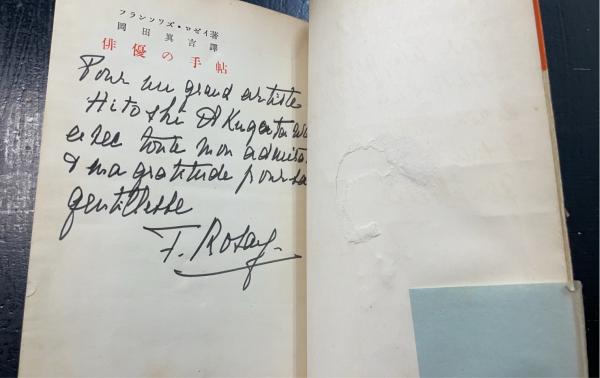 フランソワズ・ロゼイ著
岡田真吉譯
俳優の手帖
Pour un grand artiste
Hitoshi
avec toute mon admira
& ma gratitude pour sa
gentillesse
F. Rosay